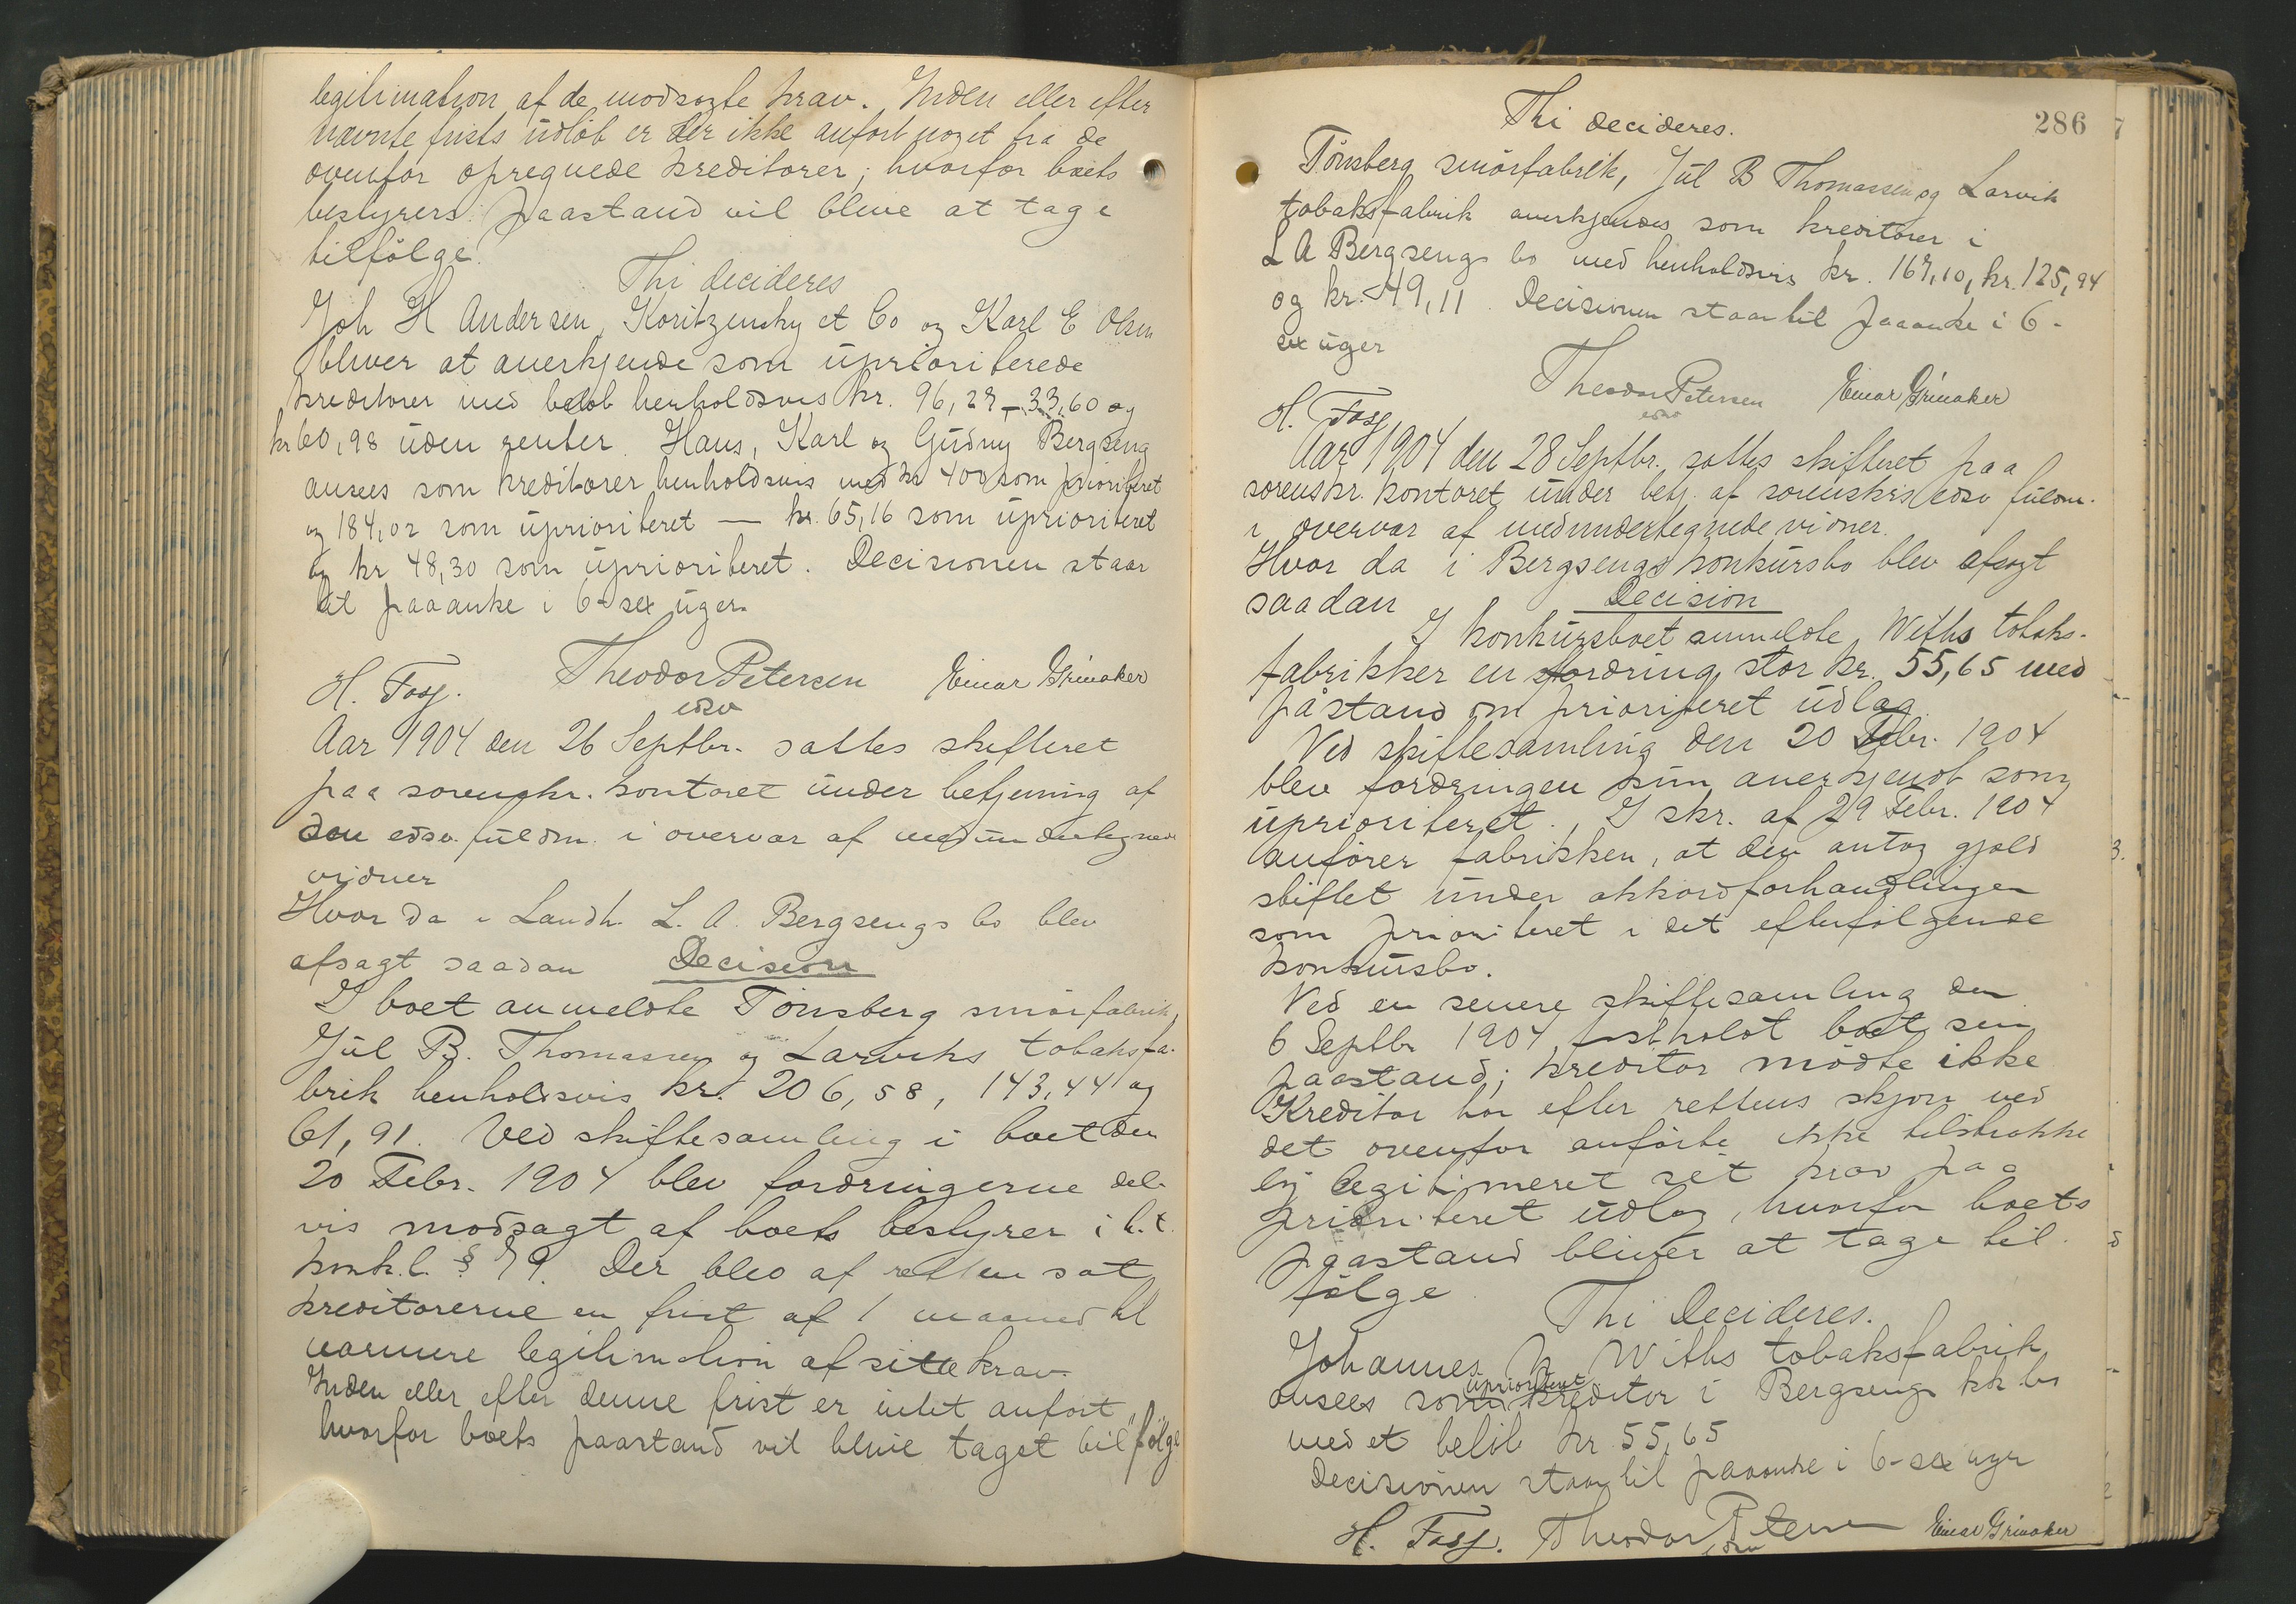 legitimation af de modsagte krav. Inden eller efter
nævnte frists udløb er der ikke anført noget fra de
ovenfor opregnede kreditorer; hvorfor boets
bestyrers paastand vil blive at tage
tilfølge.
Thi decideres
Joh H Andersen, Koritzinsky et Co og Karl E Olsen
bliver at anerkjende som uprioriterede
kreditorer med beløb henholdsvis kr. 96,27 – 33,60 og
kr 60,98 uden renter. Hans, Karl og Gudny Bergseng
ansees som kreditorer henholdsvis med kr 400 som prioriteret
og 184,02 som uprioriteret — kr. 65,16 som uprioriteret
og kr 48,30 som uprioriteret. Decisionen staar
til paaanke i 6 – sex uger.
H. Fosf. Theodor Petersen Einar Grinaker
edsv
Aar 1904 den 26 Septbr. sattes skifteret
paa sorenskr. kontoret under betjening af
den edsv. fuldm. i overvær af medundertegnede
vidner
Hvor da i Landh. L. A. Bergsengs bo blev
afsagt saadan Decision
I boet anmeldte Tønsberg smørfabrik,
Jul B. Thomassen og Larviks tobaksfa-
brik henholdsvis kr. 206,58, 143,44 og
61,91. Ved skiftesamling i boet den
20 Febr. 1904 blev fordringerne del-
vis modsagt af boets bestyrer i h.t.
konk.l. § 79. Der blev af retten sat
kreditorerne en frist af 1 maaned til
nærmere legitimation af sitte krav.
Inden eller efter denne frist er intet anført
hvorfor boets paastand vil blive taget til følge
286
Thi decideres.
Tønsberg smørfabrik, Jul B Thomassen og Larvik
tobaksfabrik anerkjendes som kreditorer i
L A Bergsengs bo med henholdsvis kr. 167,10, kr. 125,94
og kr. 49,11. Decisionen staar til paaanke i 6 -
sex uger
H. Fosf Theodor Petersen Einar Grinaker
edsv
Aar 1904 den 28 Septbr. sattes skifteret paa
sorenskr. kontoret under betj. af sorenskrs edsv fuldm.
i overvær af medundertegnede vidner.
Hvor da i Bergsengs konkursbo blev afsagt
saadan Decision
I konkursboet anmeldte Withs tobaks-
fabrikker en fordring stor kr. 55,65 med
påstand om prioriteret udlæg.
Ved skiftesamling den 20 Febr. 1904
blev fordringen kun anerkjendt som
uprioriteret. I skr. af 29 Febr. 1904
anfører fabrikken, at den antog gjæld
stiftet under akkordforhandlingen
som prioriteret i det efterfølgende
konkursbo.
Ved en senere skiftesamling den
6 Septbr 1904 fastholdt boet sin
paastand; kreditor mødte ikke
Kreditor har efter rettens skjøn ved
det ovenfor anførte ikke tilstrække
lig legitimeret set krav paa
prioriteret udlæg, hvorfor boets
paastand bliver at tage til
følge
Thi Decideres.
Johannes N Withs tobaksfabrik
uprioriteret
ansees som kreditor i Bergsengs kk bo
med et beløb kr. 55,65
Decisionen staar til paaanke i 6 - sex uger
H. Fosf. Theodor Petersen Einar Grinaker
edsv